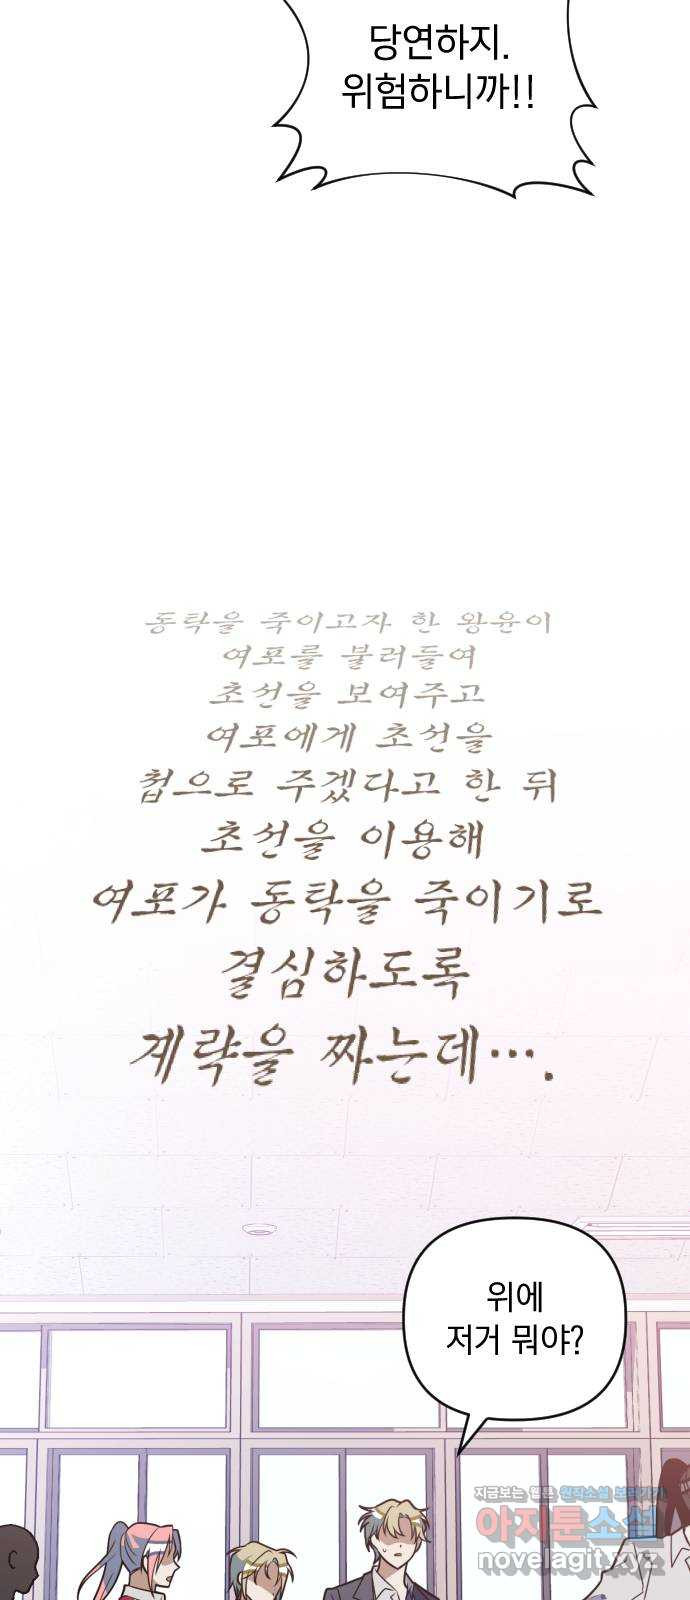 당연하지.
위험하니까!!
동탁을 죽이고자 한 왕윤이
여포를 불러들여
초선을 보여주고
여포에게 초선을
첩으로 주겠다고 한 뒤
초선을 이용해
여포가 동탁을 죽이기로
결심하도록
계략을 짜는데….
위에
저거 뭐야?
지금보는 웹툰 원작소설 보러가기
아지툰소설
novel.agit.xyz